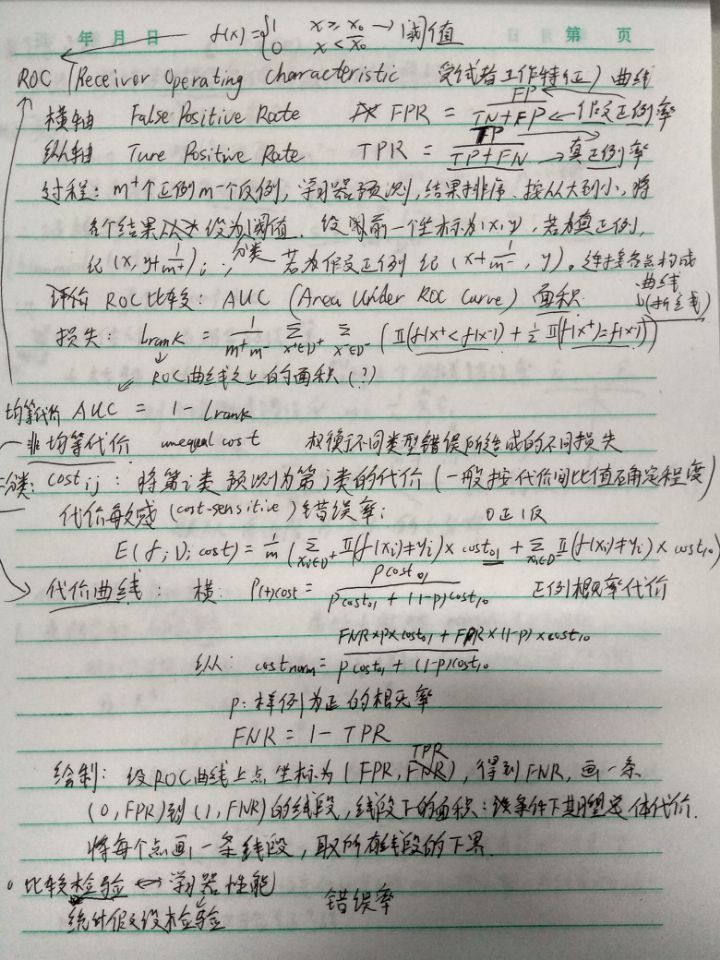 年 月 日 f(x)={1 x≥x₀ →阈值 第 页
0 x<x₀
ROC (Receiver Operating Characteristic 受试者工作特征) 曲线
横轴 False Positive Rate FPR = FP/(TN+FP) ←假正例率
纵轴 Ture Positive Rate TPR = TP/(TP+FN) →真正例率
过程: m⁺个正例m⁻个反例, 学习器预测, 结果排序, 按从大到小, 将
各个结果 设为阈值. 设 前一个坐标为(x,y), 若为真正例,
记(x, y+1/m⁺); 分类 若为假正例记(x+1/m⁻, y)。连接各点构成
曲线
(折线)
评价ROC比较: AUC (Area Under ROC Curve) 面积.
损失: Lrank = 1/(m⁺m⁻) Σx⁺∈D⁺ Σx⁻∈D⁻ (𝕀(f(x⁺)<f(x⁻)) + ½ 𝕀(f(x⁺)=f(x⁻)))
ROC曲线之上的面积(?)
均等代价 AUC = 1 - Lrank
非均等代价 unequal cost 权衡不同类型错误所造成的不同损失
二分类: costij: 将第i类预测为第j类的代价(一般按代价间比值确定程度)
代价敏感(cost-sensitive)错误率: 0正1反
E(f;D;cost) = 1/m (Σxi∈D⁺ 𝕀(f(xi)≠yi) × cost₀₁ + Σxi∈D⁻ 𝕀(f(xi)≠yi) × cost₁₀)
代价曲线: 横: P(+)cost = pcost₀₁/(pcost₀₁ + (1-p)cost₁₀) 正例概率代价
纵: costnorm = (FNR×p×cost₀₁ + FPR×(1-p)×cost₁₀)/(pcost₀₁ + (1-p)cost₁₀)
p: 样例为正的概率
FNR = 1 - TPR
TPR
绘制: 设ROC曲线上点坐标为(FPR, FNR), 得到FNR, 画一条
(0, FPR)到(1, FNR)的线段, 线段下的面积: 该条件下期望总体代价.
将每个点画一条线段, 取所有线段的下界.
比较检验 ↔ 学习器性能
统计假设检验 错误率